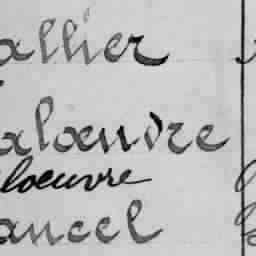 allier
alœuvre
lœuvre
ancel